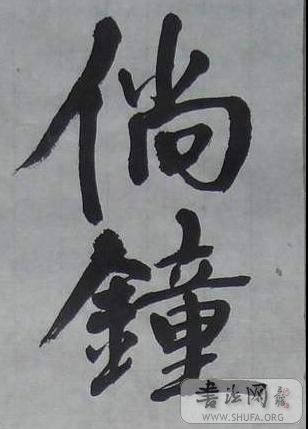 倘
鐘
書法网
WWW.SHUFA.ORG